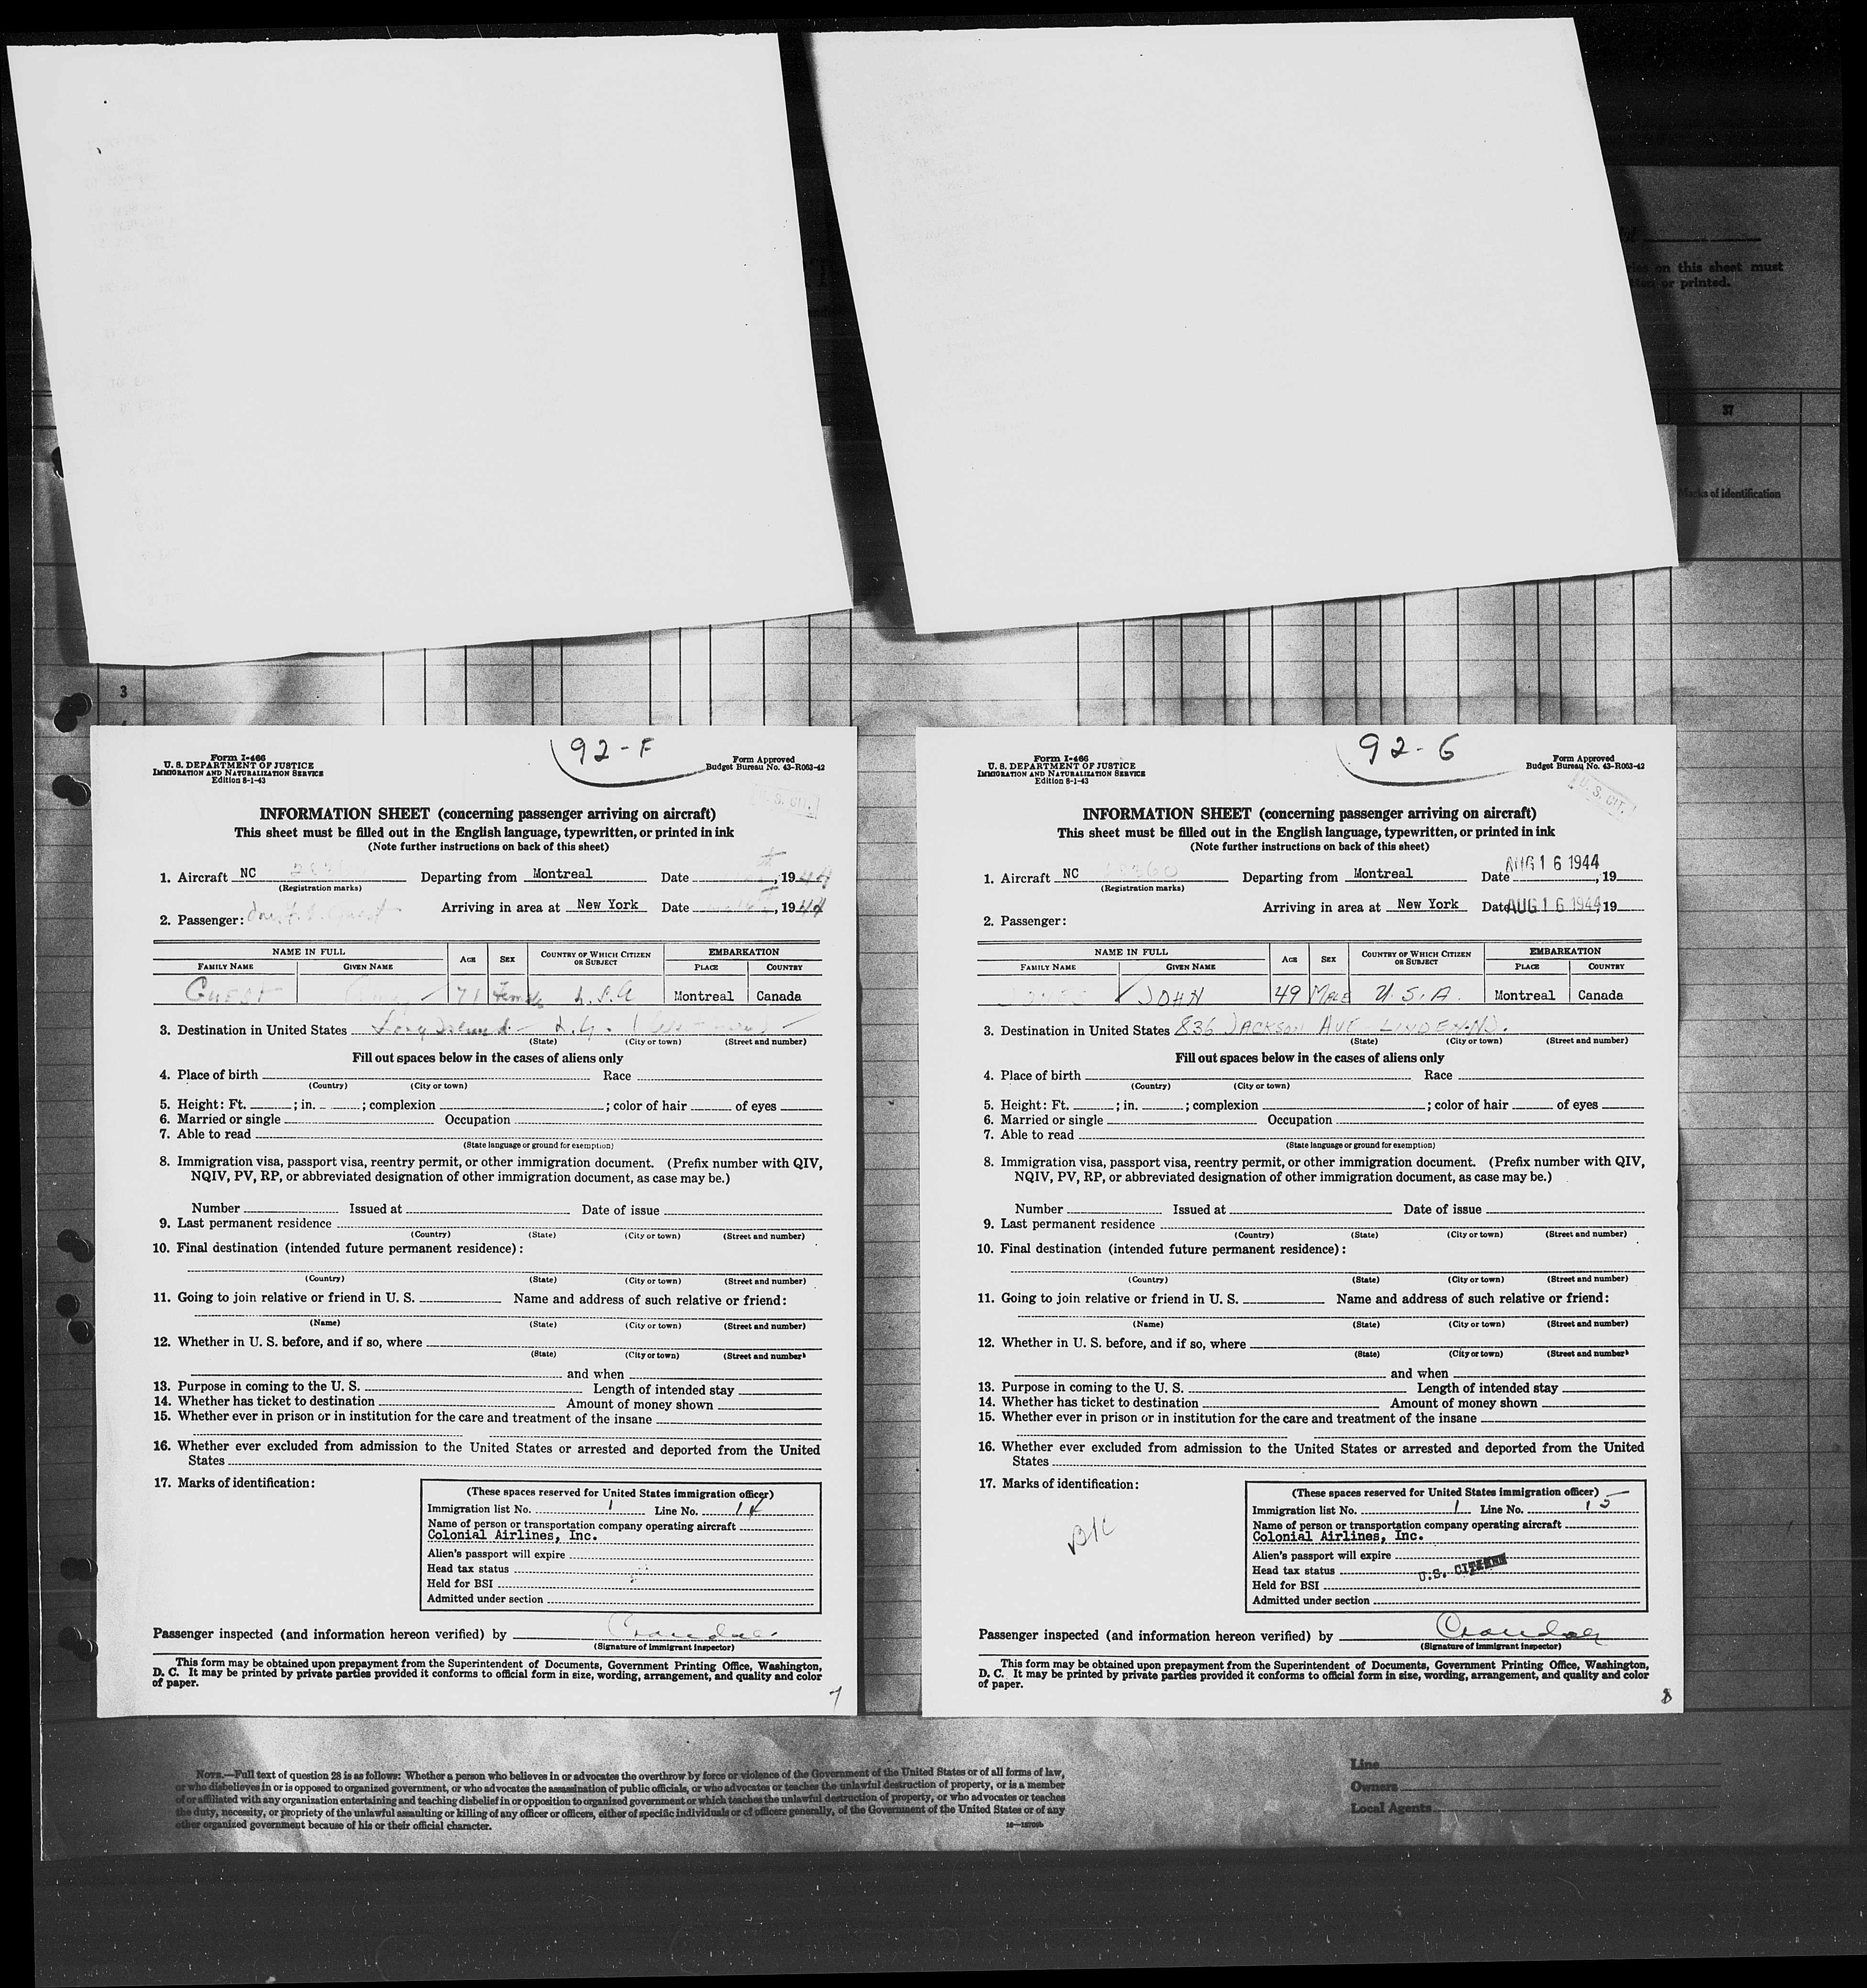 ies on this sheet must
or printed.
37
Marks of identification
3
92-F
Form I-466
U. S. DEPARTMENT OF JUSTICE
IMMIGRATION AND NATURALIZATION SERVICE
Edition 8-1-43
Form Approved
Budget Bureau No. 43-R063-42
U. S. CIT.
INFORMATION SHEET (concerning passenger arriving on aircraft)
This sheet must be filled out in the English language, typewritten, or printed in ink
(Note further instructions on back of this sheet)
1. Aircraft NC Departing from Montreal Date , 1944
(Registration marks)
Arriving in area at New York Date , 1944
2. Passenger: Guest
NAME IN FULL AGE SEX COUNTRY OF WHICH CITIZEN OR SUBJECT EMBARKATION
FAMILY NAME GIVEN NAME PLACE COUNTRY
GUEST 71 Female U.S.A Montreal Canada
3. Destination in United States Long Island
(State) (City or town) (Street and number)
Fill out spaces below in the cases of aliens only
4. Place of birth Race
(Country) (City or town)
5. Height: Ft. ; in. ; complexion ; color of hair of eyes
6. Married or single Occupation
7. Able to read
(State language or ground for exemption)
8. Immigration visa, passport visa, reentry permit, or other immigration document. (Prefix number with QIV,
NQIV, PV, RP, or abbreviated designation of other immigration document, as case may be.)
Number Issued at Date of issue
9. Last permanent residence
(Country) (State) (City or town) (Street and number)
10. Final destination (intended future permanent residence):
(Country) (State) (City or town) (Street and number)
11. Going to join relative or friend in U. S. Name and address of such relative or friend:
(Name) (State) (City or town) (Street and number)
12. Whether in U. S. before, and if so, where
(State) (City or town) (Street and number)
and when
13. Purpose in coming to the U. S. Length of intended stay
14. Whether has ticket to destination Amount of money shown
15. Whether ever in prison or in institution for the care and treatment of the insane
16. Whether ever excluded from admission to the United States or arrested and deported from the United
States
17. Marks of identification:
(These spaces reserved for United States immigration officer)
Immigration list No. 1 Line No. 14
Name of person or transportation company operating aircraft
Colonial Airlines, Inc.
Alien's passport will expire
Head tax status
Held for BSI
Admitted under section
Passenger inspected (and information hereon verified) by
(Signature of immigrant inspector)
This form may be obtained upon prepayment from the Superintendent of Documents, Government Printing Office, Washington,
D. C. It may be printed by private parties provided it conforms to official form in size, wording, arrangement, and quality and color
of paper.
7
92-G
Form I-466
U. S. DEPARTMENT OF JUSTICE
IMMIGRATION AND NATURALIZATION SERVICE
Edition 8-1-43
Form Approved
Budget Bureau No. 43-R063-42
U. S. CIT.
INFORMATION SHEET (concerning passenger arriving on aircraft)
This sheet must be filled out in the English language, typewritten, or printed in ink
(Note further instructions on back of this sheet)
1. Aircraft NC Departing from Montreal Date AUG 16 1944, 19
(Registration marks)
Arriving in area at New York Date AUG 16 1944, 19
2. Passenger:
NAME IN FULL AGE SEX COUNTRY OF WHICH CITIZEN OR SUBJECT EMBARKATION
FAMILY NAME GIVEN NAME PLACE COUNTRY
JOHN 49 MALE U.S.A. Montreal Canada
3. Destination in United States 836 JACKSON AVE LINDEN N.J.
(State) (City or town) (Street and number)
Fill out spaces below in the cases of aliens only
4. Place of birth Race
(Country) (City or town)
5. Height: Ft. ; in. ; complexion ; color of hair of eyes
6. Married or single Occupation
7. Able to read
(State language or ground for exemption)
8. Immigration visa, passport visa, reentry permit, or other immigration document. (Prefix number with QIV,
NQIV, PV, RP, or abbreviated designation of other immigration document, as case may be.)
Number Issued at Date of issue
9. Last permanent residence
(Country) (State) (City or town) (Street and number)
10. Final destination (intended future permanent residence):
(Country) (State) (City or town) (Street and number)
11. Going to join relative or friend in U. S. Name and address of such relative or friend:
(Name) (State) (City or town) (Street and number)
12. Whether in U. S. before, and if so, where
(State) (City or town) (Street and number)
and when
13. Purpose in coming to the U. S. Length of intended stay
14. Whether has ticket to destination Amount of money shown
15. Whether ever in prison or in institution for the care and treatment of the insane
16. Whether ever excluded from admission to the United States or arrested and deported from the United
States
17. Marks of identification:
B/C
(These spaces reserved for United States immigration officer)
Immigration list No. 1 Line No. 15
Name of person or transportation company operating aircraft
Colonial Airlines, Inc.
Alien's passport will expire
Head tax status U.S. CITIZEN
Held for BSI
Admitted under section
Passenger inspected (and information hereon verified) by
(Signature of immigrant inspector)
This form may be obtained upon prepayment from the Superintendent of Documents, Government Printing Office, Washington,
D. C. It may be printed by private parties provided it conforms to official form in size, wording, arrangement, and quality and color
of paper.
8
NOTE.—Full text of question 28 is as follows: Whether a person who believes in or advocates the overthrow by force or violence of the Government of the United States or of all forms of law,
or who disbelieves in or is opposed to organized government, or who advocates the assassination of public officials, or who advocates or teaches the unlawful destruction of property, or is a member
of or affiliated with any organization entertaining and teaching disbelief in or opposition to organized government or which teaches the unlawful destruction of property, or who advocates or teaches
the duty, necessity, or propriety of the unlawful assaulting or killing of any officer or officers, either of specific individuals or of officers generally, of the Government of the United States or of any
other organized government because of his or their official character.
Line
Owners
Local Agents